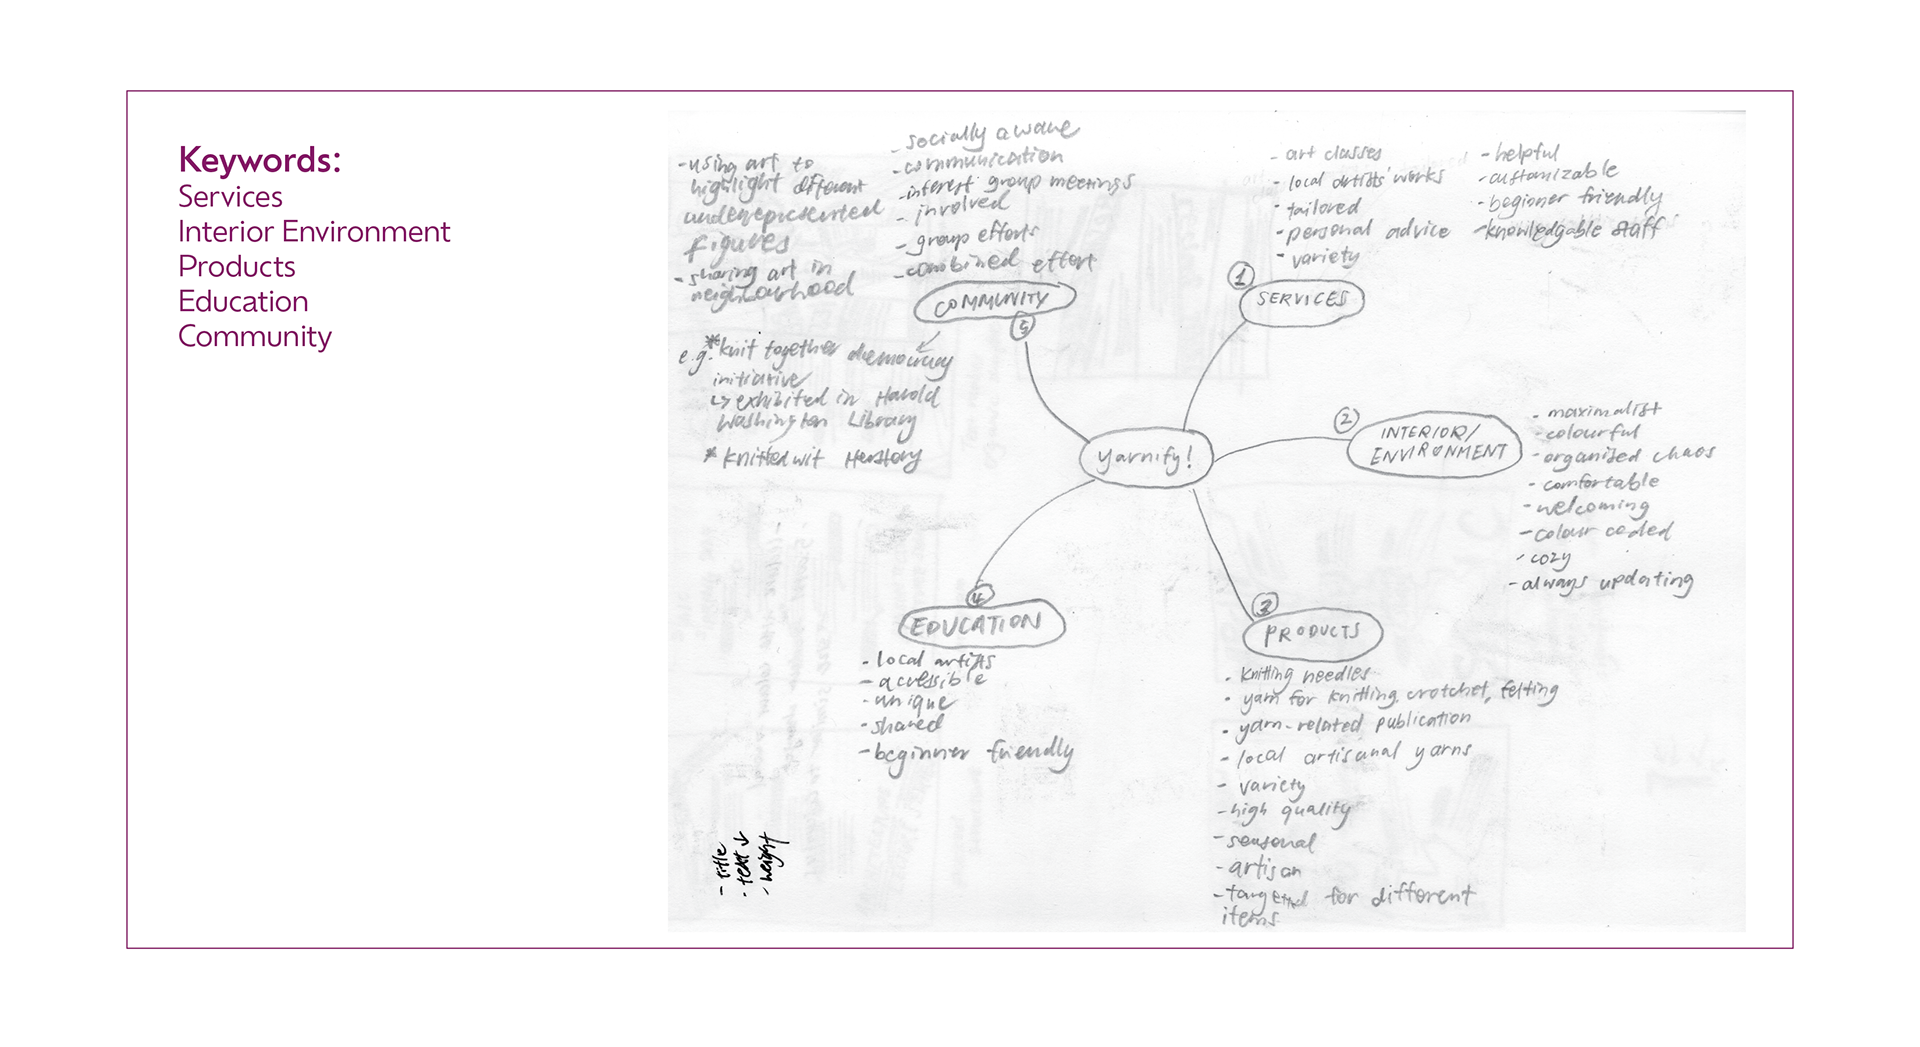 Keywords:
Services
Interior Environment
Products
Education
Community
- using art to
highlight different
underrepresented
figures
- sharing art in
neighbourhood
- socially aware
- communication
- interest group meetings
- involved
- group efforts
- combined effort
COMMUNITY
5
e.g. * knit together democracy
initiative
↳ exhibited in Harold
Washington Library
* knitted wit Herstory
- art classes
- local artists' works
- tailored
- personal advice
- variety
- helpful
- customizable
- beginner friendly
- knowledgable staff
1
SERVICES
yarnify!
2
INTERIOR/
ENVIRONMENT
- maximalist
- colourful
- organized chaos
- comfortable
- welcoming
- colour coded
- cozy
- always updating
4
EDUCATION
- local artists
- acessible
- unique
- shared
- beginner friendly
3
PRODUCTS
- knitting needles
- yarn for knitting, crotchet, felting
- yarn-related publication
- local artisanal yarns
- variety
- high quality
- seasonal
- artisan
- targetted for different
items
- title
- text ↓
- height